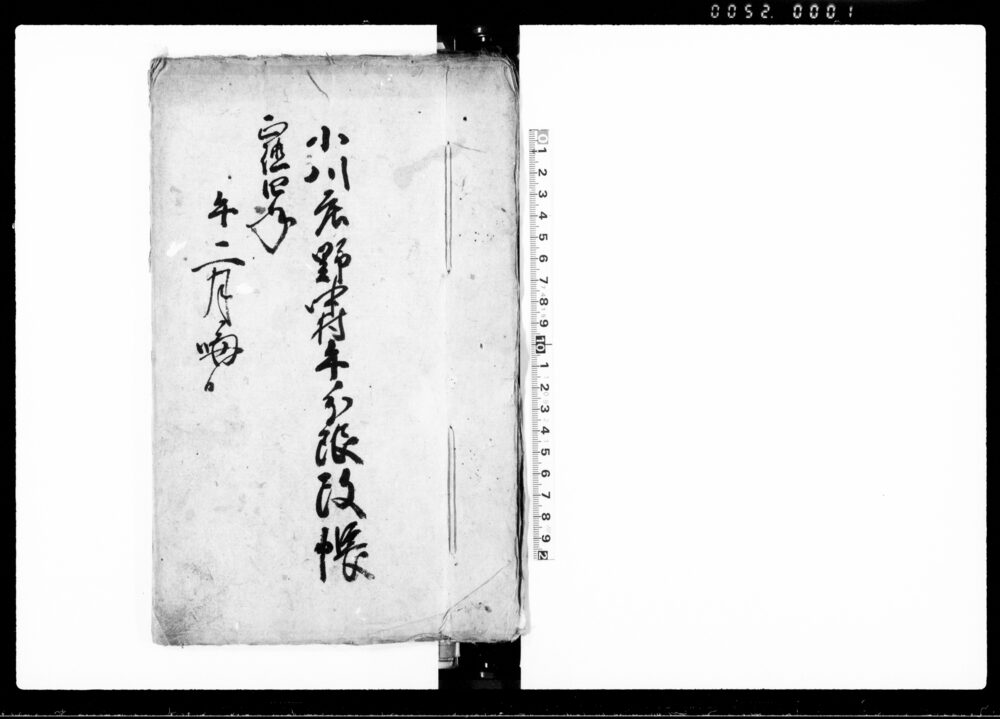 0052. 0001
小川庄野中村午分限改帳
正徳四年
午二月晦日
0 1 2 3 4 5 6 7 8 9 10 1 2 3 4 5 6 7 8 9 2